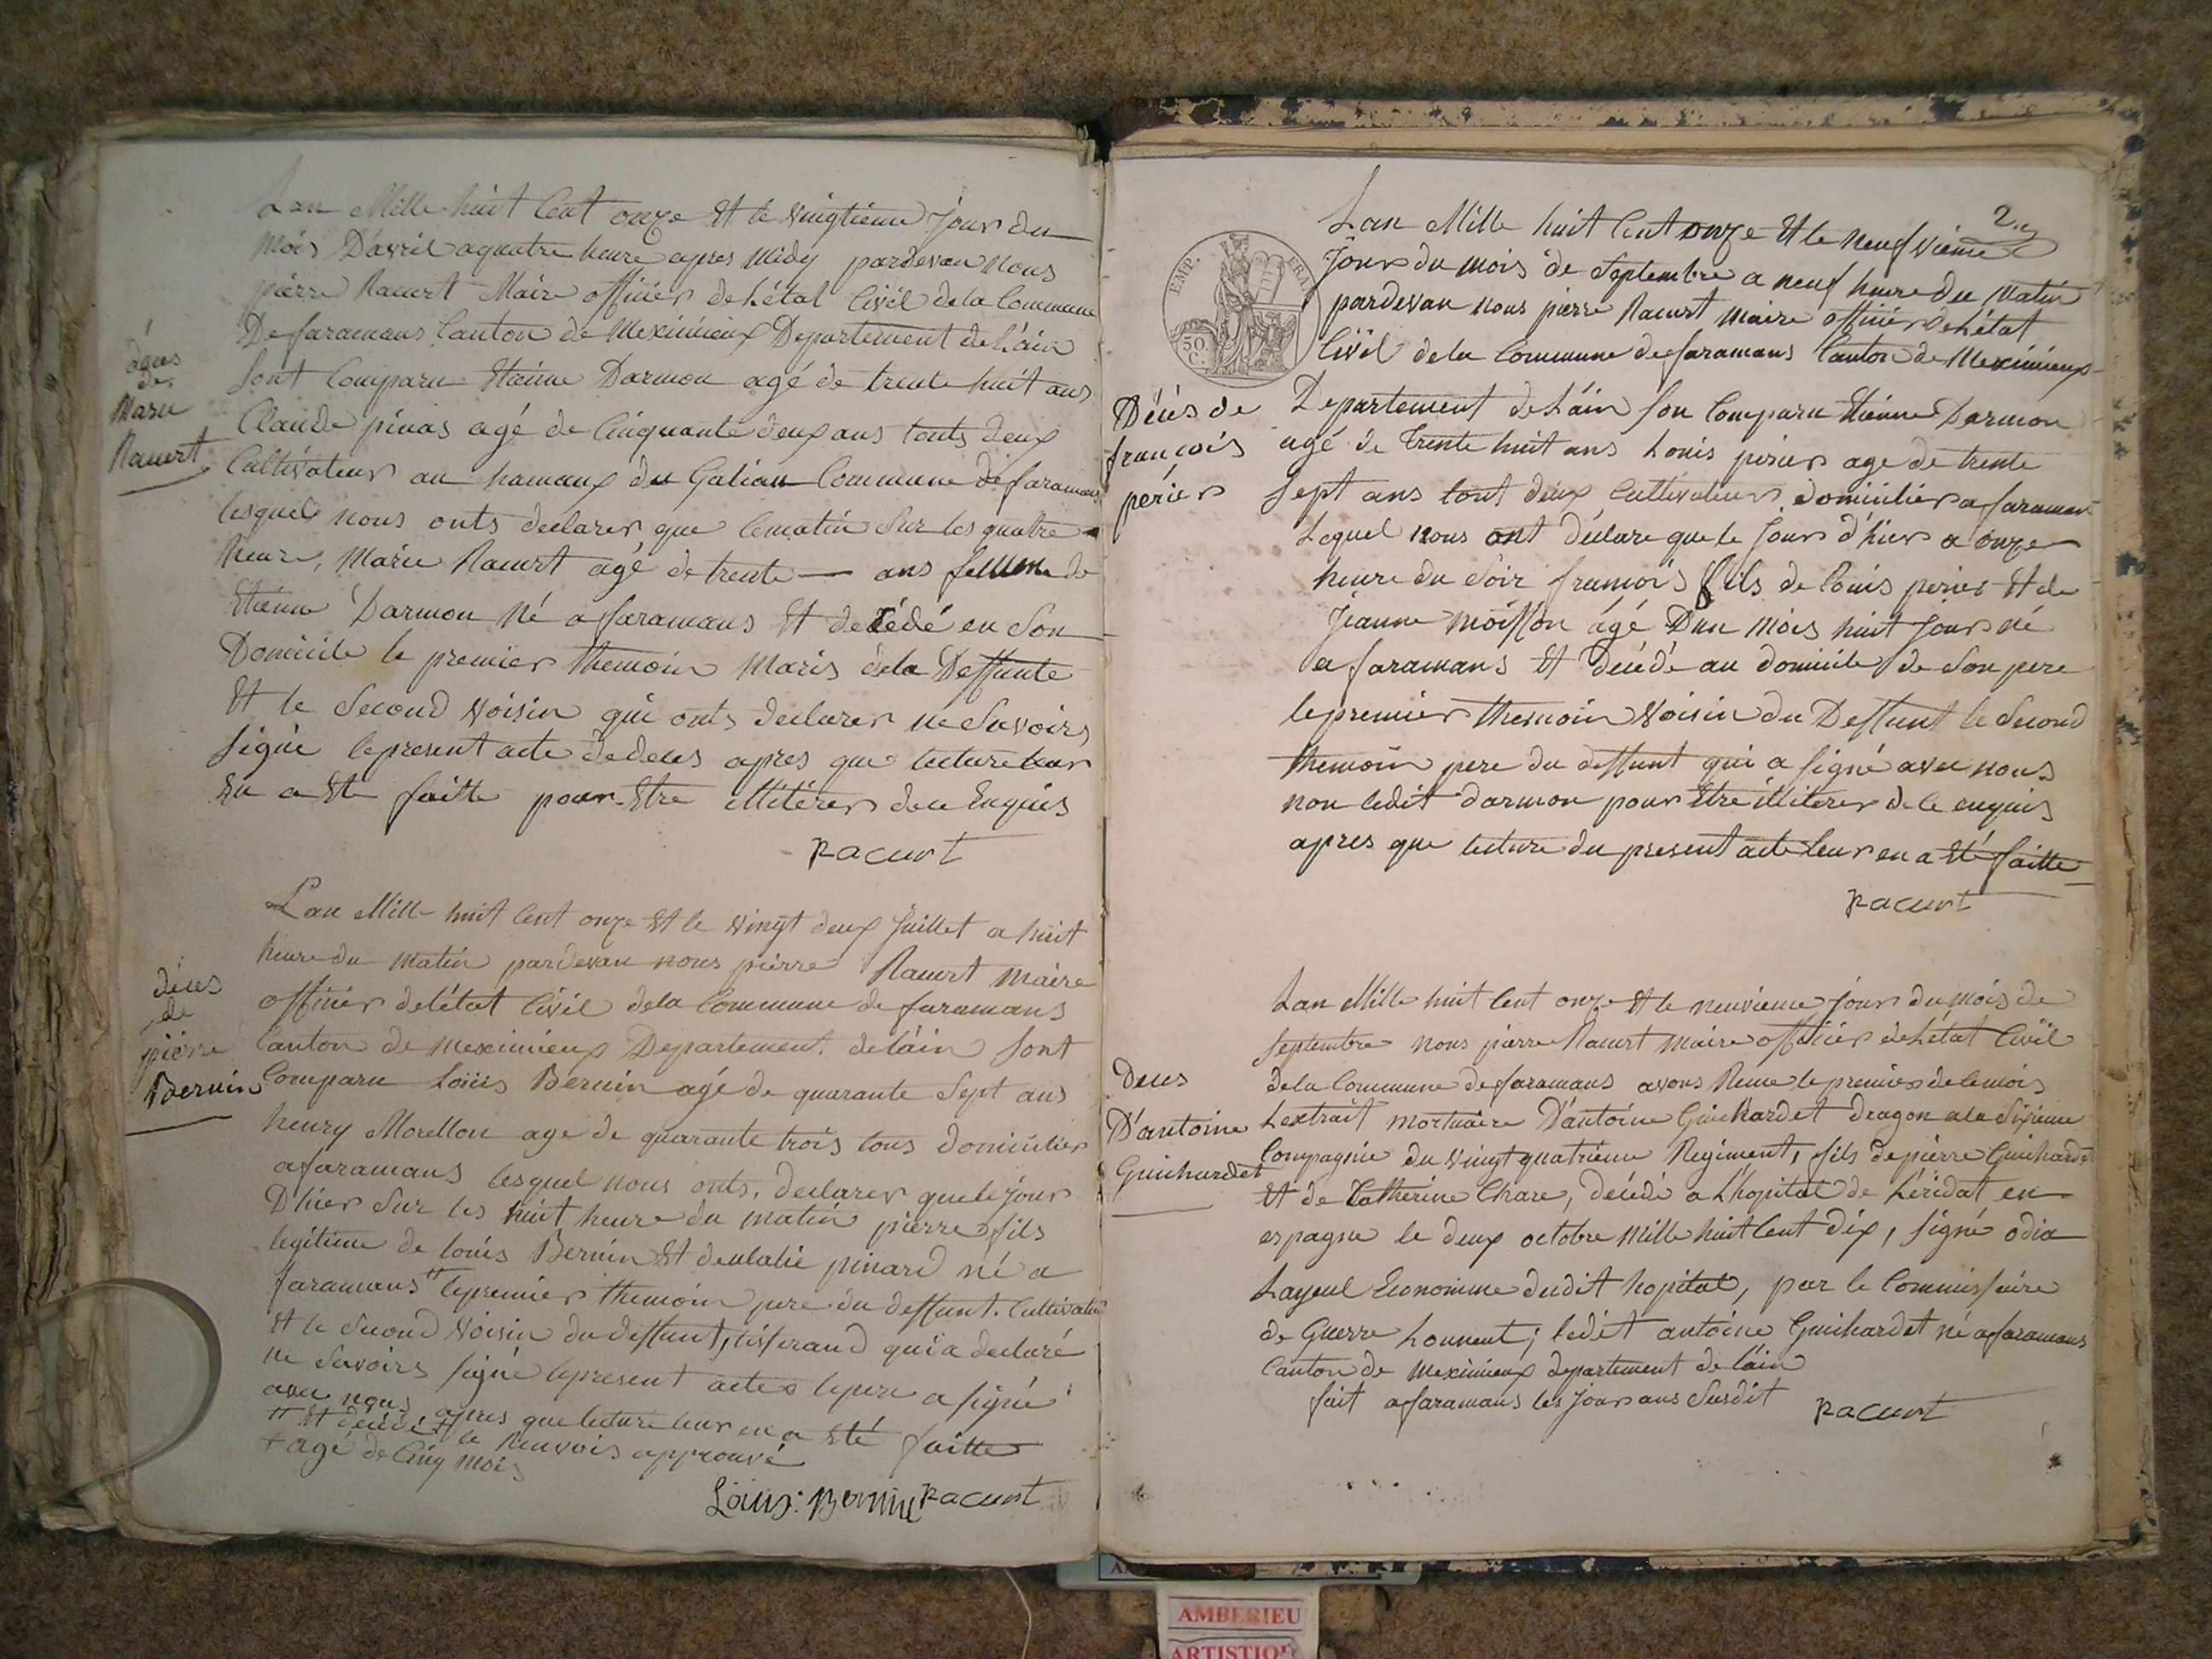 Lan Mille huit Cent onze Et le vingtieme Jour du
Mois Davril a quatre heure apres Midy pardevan Nous
pierre Racurt Maire officier de L'état Civil de la Commune
De faramans Canton de Meximieux Departement de L'ain
Sont Comparu Etienne Darmon agé de trente huit ans
Claude pinas agé de Cinquante deux ans touts deux
Cultivateur au hamaux du Galian Commune de faramans
lesquels nous onts declarer que le matin Sur les quatre
heure, Marie Racurt agé de trente — ans femme de
Etienne Darmon Né a faramans Et décédé en Son
Domicile le premier themoin Maris de la Deffunte
Et le Second Voisin qui onts declarer ne Savoirs
Signé le present acte de deces apres que lecture leur
En a Ete faitte pour Etre illitérer de ce Enquis
Racurt
déces
de
Marie
Racurt
Lan Mille huit Cent onze Et le vingt deux Juillet a huit
heure du Matin pardevan nous pierre Racurt Maire
officier de l'état Civil de la Commune de faramans
Canton de Meximieux Departement de l'ain Sont
Comparu Loüis Bernin agé de quarante Sept ans
henry Morellon age de quarante trois tous domicilier
a faramans lesquel nous onts declarer que le Jour
D'hier Sur les huit heure du matin pierre fils
legitime de louis Bernin Et deulalie pinard né a
faramans " le premier themoin pere du deffunt Cultivateur
Et le Second Voisin du deffunt, tisserand qui a declaré
ne Savoirs Signé le present acte le pere a Signé
avec nous apres que lecture leur en a Eté faitte
" Et décédé le Renvois approuvé
+ agé de Cinq mois
Loüis: Bernin Racurt
déces
de
pierre
Bernin
2.e
Lan Mille huit Cent onze Et le neufvieme
Jour du mois de Septembre a neuf heure du Matin
pardevan nous pierre Racurt Maire officier de L'état
Civil de la Commune de faramans Canton de Meximieux
Departement de L'ain Son Comparu Etienne Darmon
agé de Trente huit ans Louis perier age de trente
Sept ans tout deux Cultivateur domicilier a faramans
Lequel nous ont déclare que le Jour d'hier a onze
heure du Soir francois fils de louis perier Et de
Jeanne Moisson ágé Dun Mois huit Jour né
a faramans Et décédé au domicile de Son pere
le premier themoin Voisin du Deffunt le Second
themoin pere du deffunt qui a Signé avec nous
non ledit darmon pour Etre illiterer de le enquis
apres que lecture du present acte Leur en a Eté faitte
Racurt
EMP. FRAN.
50 C.
Décés de
françois
périer
Lan Mille huit Cent onze Et le neuvieme Jour du mois de
Septembre nous pierre Racurt Maire officier de L'état Civil
de la Commune de faramans avons Recue le premier de le mois
Lextrait Mortuaire D'antoine Guichardet dragon a la Sixieme
Compagnie du Vingt quatrieme Regiment, fils de pierre Guichardet
Et de Catherine Chare, décédé a L'hopital de Léridat en
espagne le deux octobre Mille huit Cent dix, Signé odia
Layeul Economme dudit hopital, par le Commissaire
de Guerre Lounent; ledit antoine Guichardet né a faramans
Canton de Meximieux departement de l'ain
fait a faramans les Jour ans Susdit
Racurt
Deces
D'antoine
Guichardet
AMBERIEU
ARTISTIQUE